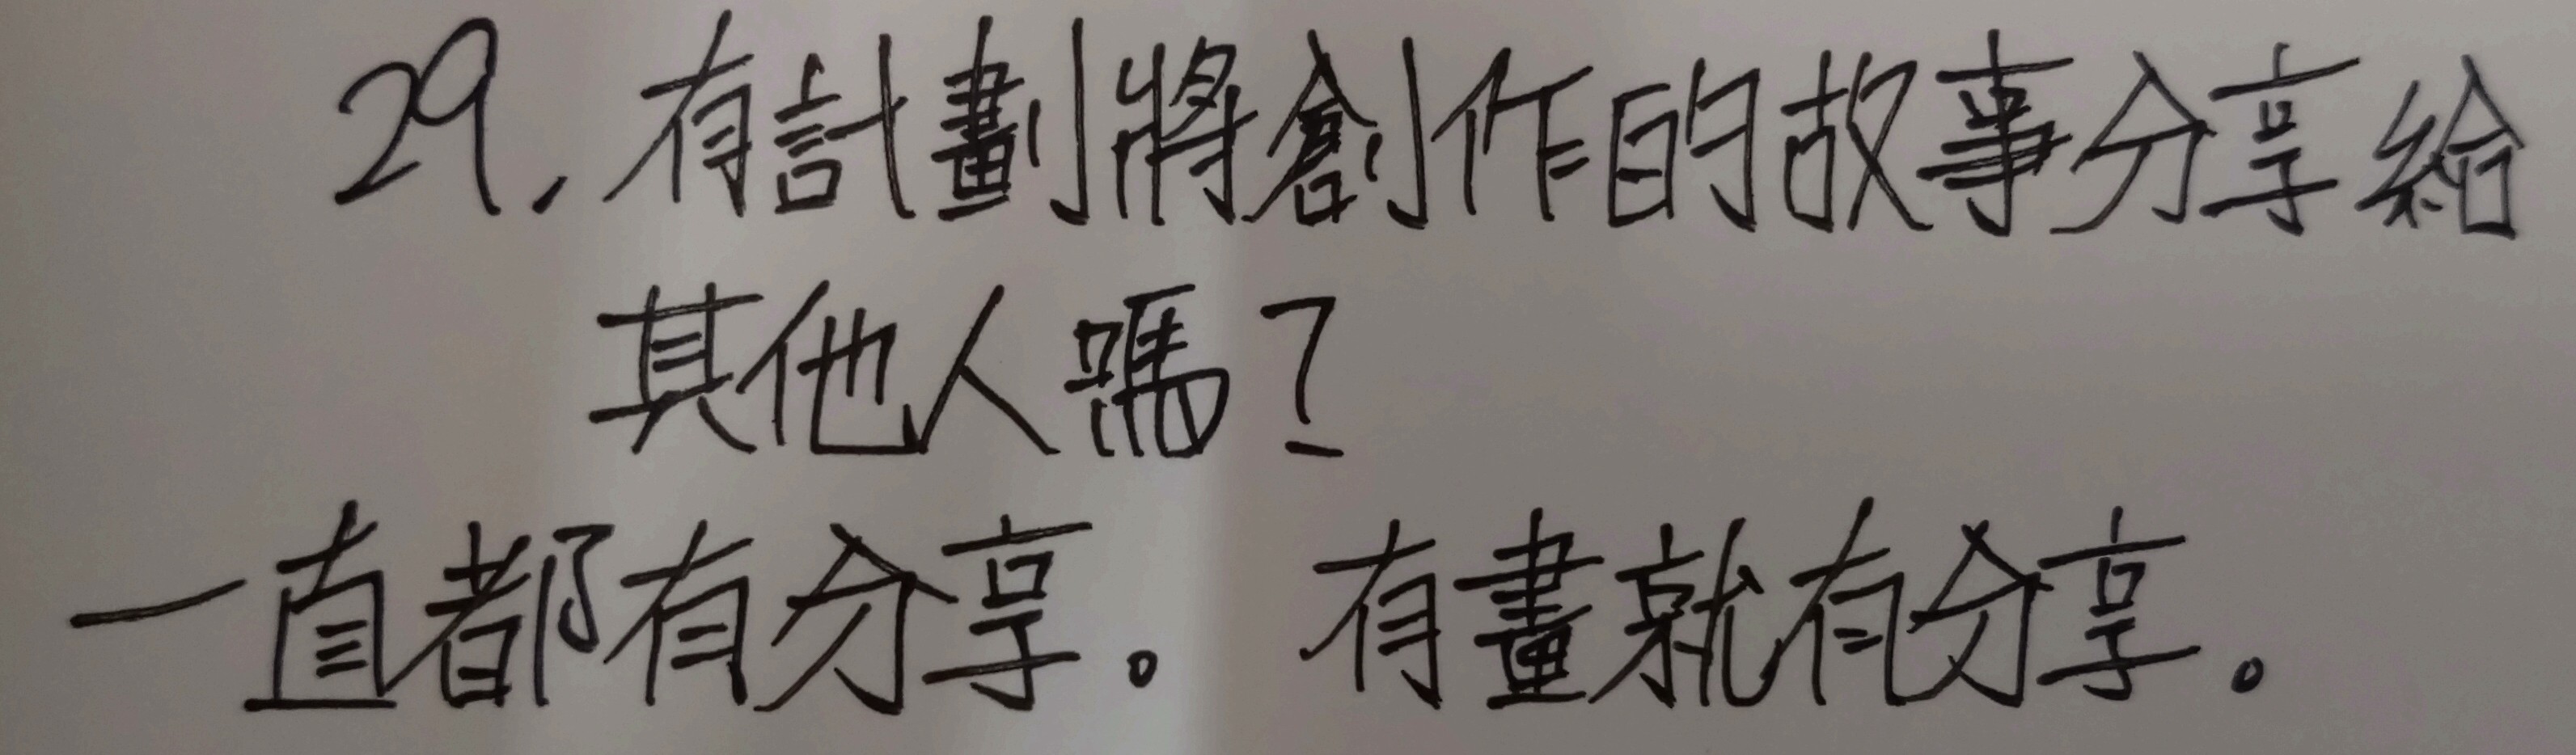 29. 有計劃將創作的故事分享給
其他人嗎?
一直都有分享。有畫就有分享。